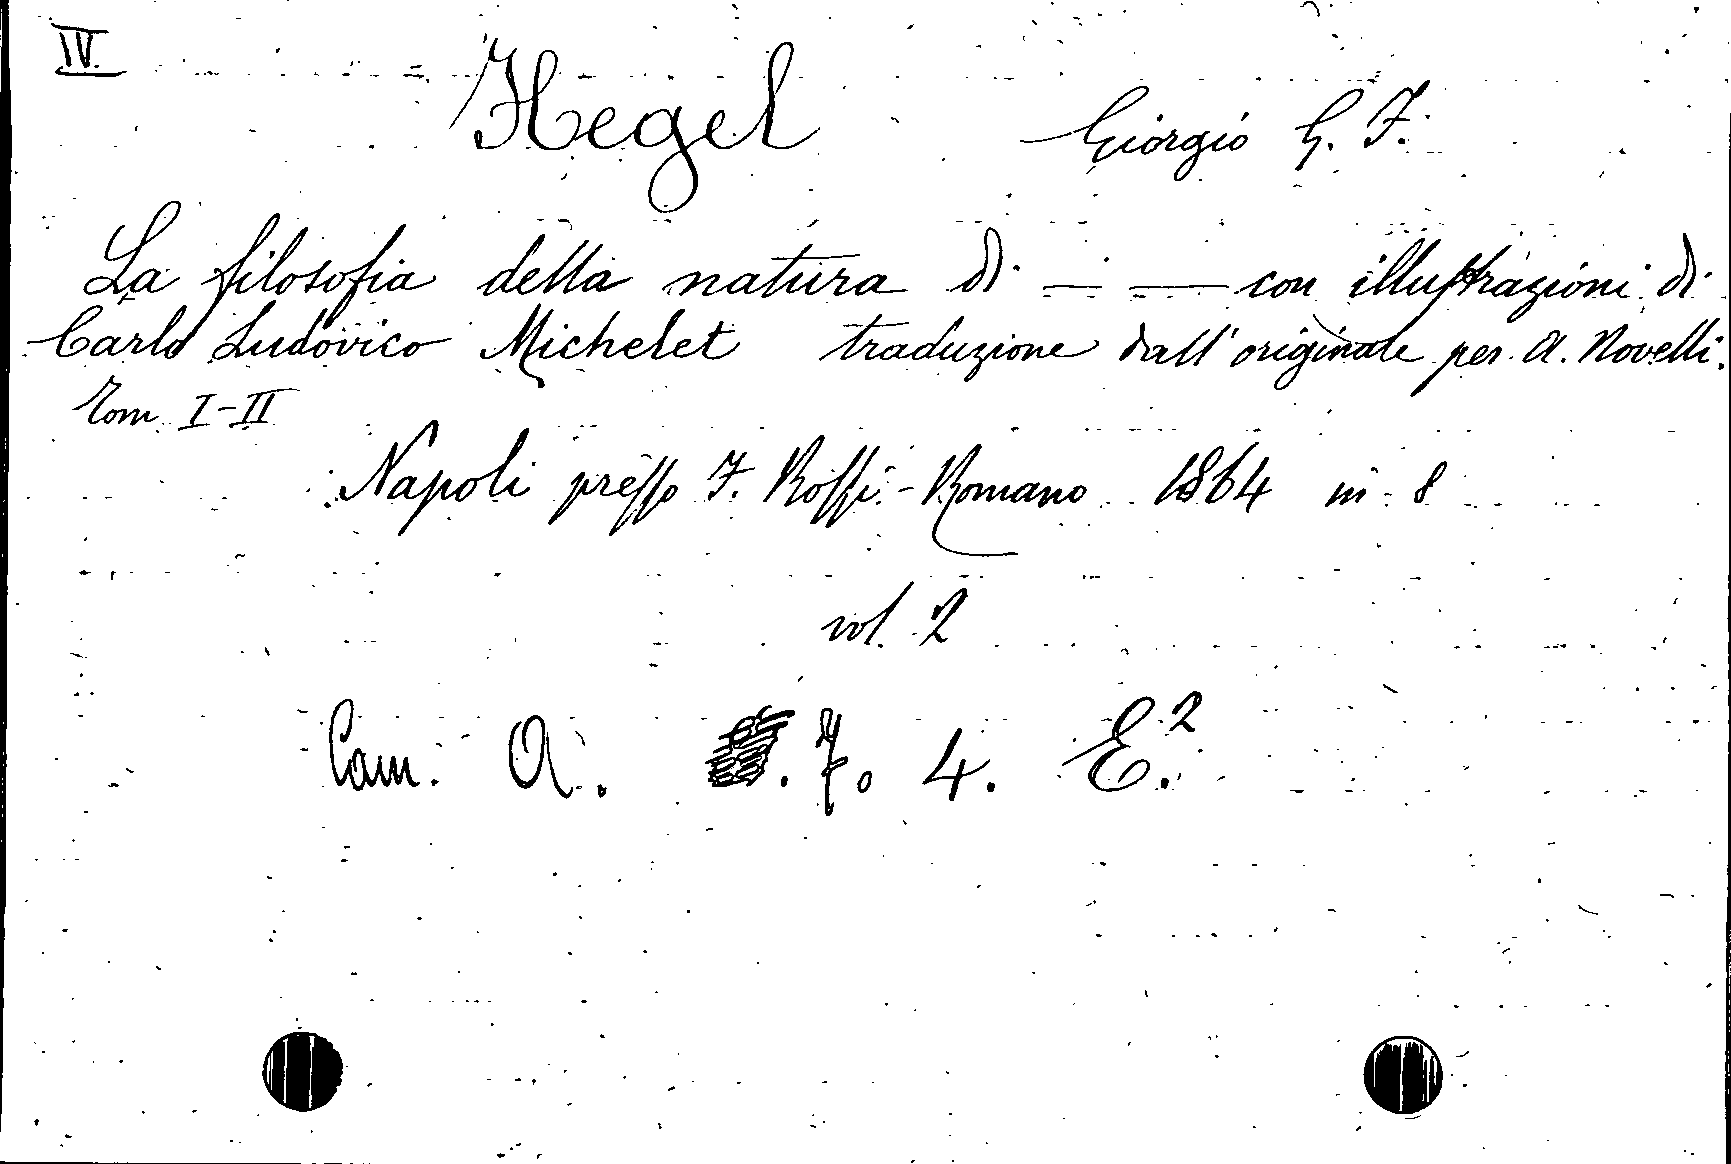 IV.
Hegel Giorgio G. F.
La filosofia della natura di — — con illustrazioni di
Carlo Ludovico Michelet traduzione dall'originale per A. Novelli.
Tom. I-II
Napoli presso F. Rossi-Romano 1864 in 8
vol. 2
Cam. A. . 7. 4. E.²